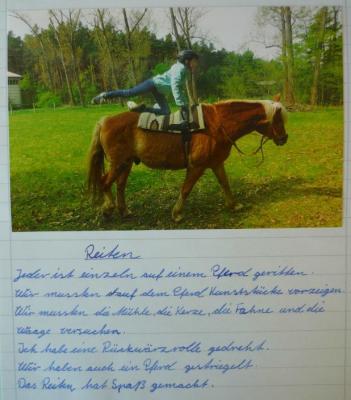 Reiten
Jeder ist einzeln auf einem Pferd geritten.
Wir mussten auf dem Pferd Kunststücke vorzeigen.
Wir mussten die Mühle, die Kerze, die Fahne und die
Waage versuchen.
Ich habe eine Rückwärzrolle gedreht.
Wir haben auch ein Pferd gestriegelt.
Das Reiten hat Spaß gemacht.